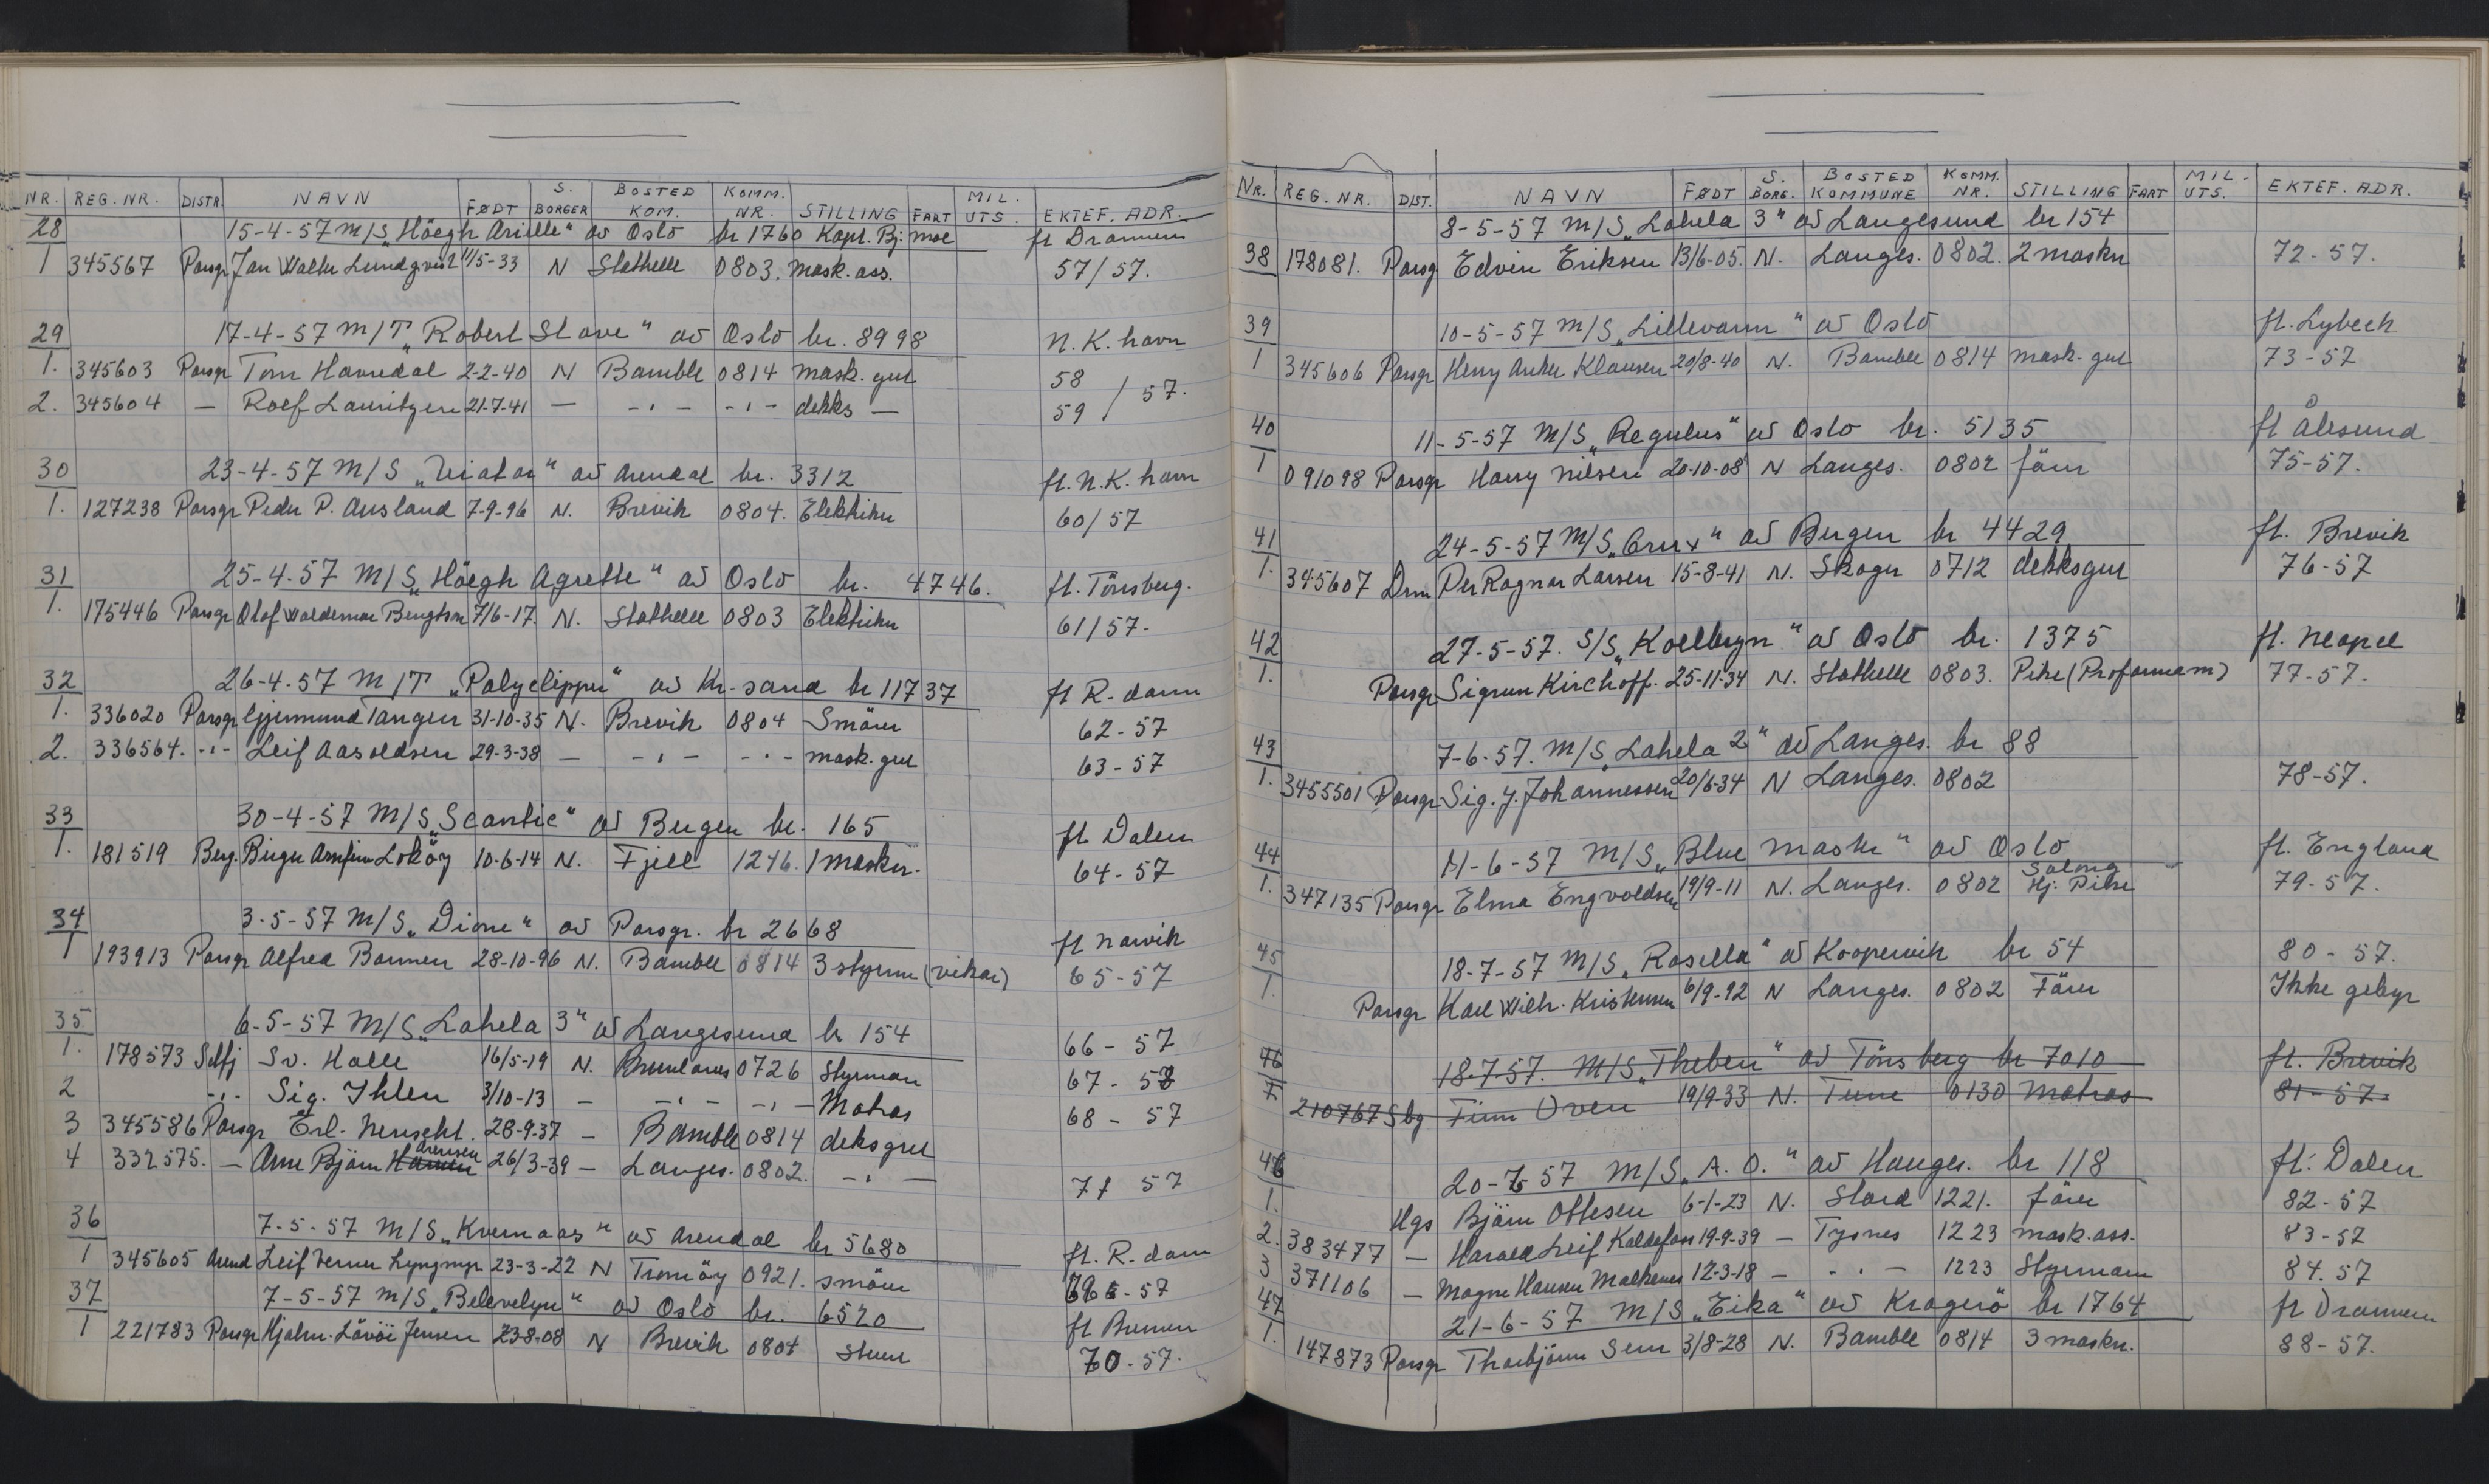 NR. REG. NR. DISTR. NAVN FØDT S. BORGER BOSTED KOM. KOMM. NR. STILLING FART MIL. UTS. EKTEF. ADR.
28 15-4-57 M/S „Höegh Arielle" av Oslo br 1760 Kapt. Bj. Moe fl Drammen
1 345567 Porsgr Jan Walter Lundqvist 11/5-33 N Stathelle 0803. mask. ass. 57/57.
29 17-4-57 M/T „Robert Stove" av Oslo br. 8998 N. K. havn
1. 345603 Porsgr Tom Havredal 2-2-40 N Bamble 0814 mask. gut 58 / 57.
2. 345604 — Rolf Lauritzen 21-7-41 — -,- -,- dekks — 59
30 23-4-57 M/S „Viator" av Arendal br. 3312 fl. N. K. havn
1. 127238 Porsgr Peder P. Ausland 7-9-96 N. Brevik 0804. Elektriker 60/57
31 25-4-57 M/S „Höegh Agrette" av Oslo br. 4746. fl. Tönsberg.
1. 175446 Porsgr Olof Waldemar Bengtson 7/6-17. N. Stathelle 0803 Elektriker 61/57.
32 26-4-57 M/T „Polyclipper" av Kr-sand br 11737 fl R-dam
1. 336020 Porsgr Gjermund Tangen 31-10-35 N. Brevik 0804 Smörer 62-57
2. 336564. -,- Leif Aasoldsen 29-3-38 — -,- -,- mask. gut 63-57
33 30-4-57 M/S „Scantic" av Bergen br. 165 fl Dalen
1. 181519 Berg. Birger Arnfinn Loköy 10-6-14 N. Fjell 1246. 1 masker. 64-57
34 3-5-57 M/S „Dione" av Porsgr. br 2668 fl Narvik
1 193913 Porsgr Alfred Bonnen 28-10-96 N. Bamble 0814 3 styrm (vikar) 65-57
35 6-5-57 M/S „Lahela 3" av Langesund br 154
1. 178573 Selfj Sv. Halle 16/5-19 N. Brunlanes 0726 Styrman 66-57
2 -,- Sig. Ihlen 3/10-13 — -,- -,- Matros 67-58
3 345586 Porsgr Erl. Nenseht. 28-9-37 — Bamble 0814 deksgut 68-57
4 332575. — Arne Björn Hansen Arensen 26/3-39 — Langes. 0802. -,- 71 57
36 7-5-57 M/S „Kvernaas" av Arendal br 5680 fl. R. dam
1 345605 Arend Leif Verner Lyngmyr 23-3-22 N Tromöy 0921. smörer 69-57
37 7-5-57 M/S „Belevelyn" av Oslo br. 6520 fl Bremen
1 221783 Porsgr Hjalm. Lövöi Jensen 23-8-08 N Brevik 0804 Stuer 70-57.
NR. REG. NR. DIST. NAVN FØDT S. BORG. BOSTED KOMMUNE KOMM. NR. STILLING FART MIL- UTS. EKTEF. ADR.
8-5-57 M/S „Lahela 3" av Langesund br 154
38 178081. Porsg Edvin Eriksen 13/6-05. N. Langes. 0802. 2 maskn 72-57.
39 10-5-57 M/S „Lillevann" av Oslo fl. Lybeck
1 345606 Porsgr Henry Anker Klausen 20/8-40 N. Bamble 0814 mask-gut 73-57
40 11-5-57 M/S „Regulus" av Oslo br. 5135 fl Ålesund
1 091098 Porsgr Harry Nilsen 20-10-08 N Langes. 0802 förer 75-57.
41 24-5-57 M/S „Crux" av Bergen br 4429 fl. Brevik
1. 345607 Drm Per Ragnar Larsen 15-8-41 N. Skoger 0712 dekksgut 76-57
42 27-5-57. S/S „Kollbryn" av Oslo br. 1375 fl. Neapel
1. Porsgr Sigrun Kirchoff. 25-11-34 N. Stathelle 0803. Pike (Proformam) 77-57.
43 7-6-57. M/S „Lahela 2" av Langes. br 88
1. 3455501 Porsgr. Sig. J. Johannessen 20/6-34 N Langes. 0802 78-57.
44 11-6-57 M/S „Blue Master" av Oslo fl. England
1. 347135 Porsgr Elma Engvoldsen 19/9-11 N. Langes. 0802 Salong Hj. Pike 79-57.
45 18-7-57 M/S „Rosella" av Koopervik br 54 80-57.
1. Porsgr Karl Wilh. Kristensen 6/9-92 N Langes. 0802 Förer Ikke gebyr
46 18-7-57. M/S „Theben" av Tönsberg br 7010 fl. Brevik
1. 210767 Sbg Finn Oven 19/9-33 N. Tune 0130 Matros 81-57.
46 20-7-57 M/S „A. O." av Hauges. br 118 fl. Dalen
1. Hgs Björn Ottesen 6-1-23 N. Stord 1221. förer 82-57
2. 383477 — Harald Leif Kaldefoss 19-9-39 — Tysnes 1223 mask. ass. 83-57
3 371106 — Magne Hansen Malkenes 12-3-18 — -,- 1223 Styrmann 84.57
47 21-6-57 M/S „Eika" av Kragerö br 1764 fl Drammen
1. 147873 Porsgr Thorbjörn Sem 3/8-28 N. Bamble 0814 3 maskn. 88-57.